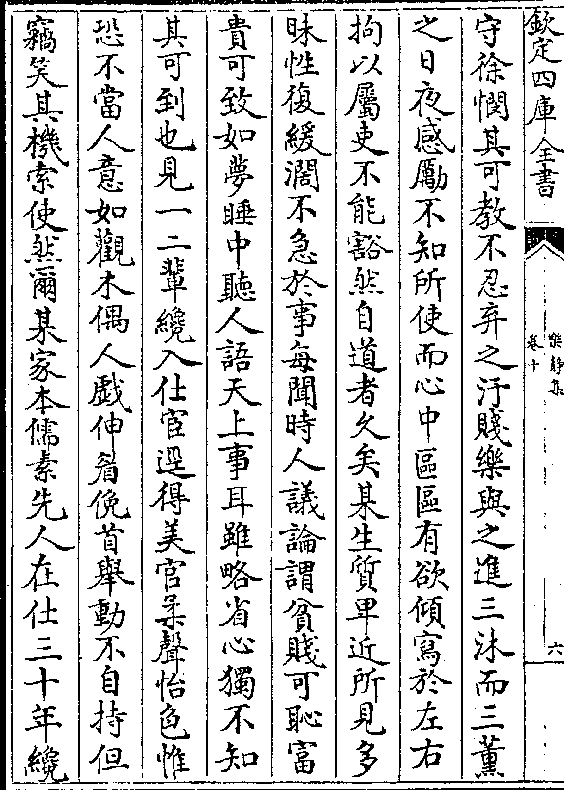 欽定四庫全書
樂靜集
卷十
六
守徐憫其可教不忍弃之汙賤樂與之進三沐而三薰
之日夜感勵不知所使而心中區區有欲傾寫於左右
拘以屬吏不能豁然自道者久矣某生質卑近所見多
昧性復緩濶不急於事每聞時人議論謂貧賤可恥富
貴可致如夢睡中聽人語天上事耳雖略省心獨不知
其可到也見一二輩纔入仕宦迺得美官柔聲怡色惟
恐不當人意如觀木偶人戲伸眉俛首舉動不自持但
竊笑其機索使然爾某家本儒素先人在仕三十年纔